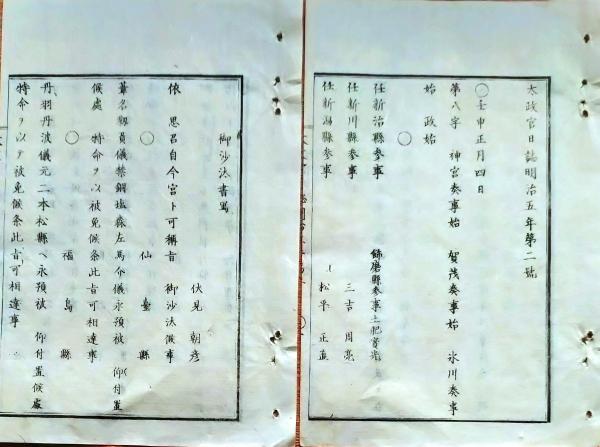 太政官日誌明治五年第二號
〇壬申正月四日
第八字　神宮奏事始　賀茂奏事始　氷川奏事
始　政始
〇
任新治縣參事　飾磨縣參事土肥
任新川縣參事　三吉周亮
任新潟縣參事　松平正直
御沙汰書寫
伏見　朝彦
依　思召自今宮ト可稱旨　御沙汰候事
〇　仙臺縣
葦名靱負儀禁錮塩森左馬介儀永預被　仰付置
候處　特命ヲ以被免候条此旨可相達事
〇　福島縣
丹羽丹波儀元二本松縣ヘ永預被　仰付置候處
特命ヲ以テ被免候条此旨可相達事